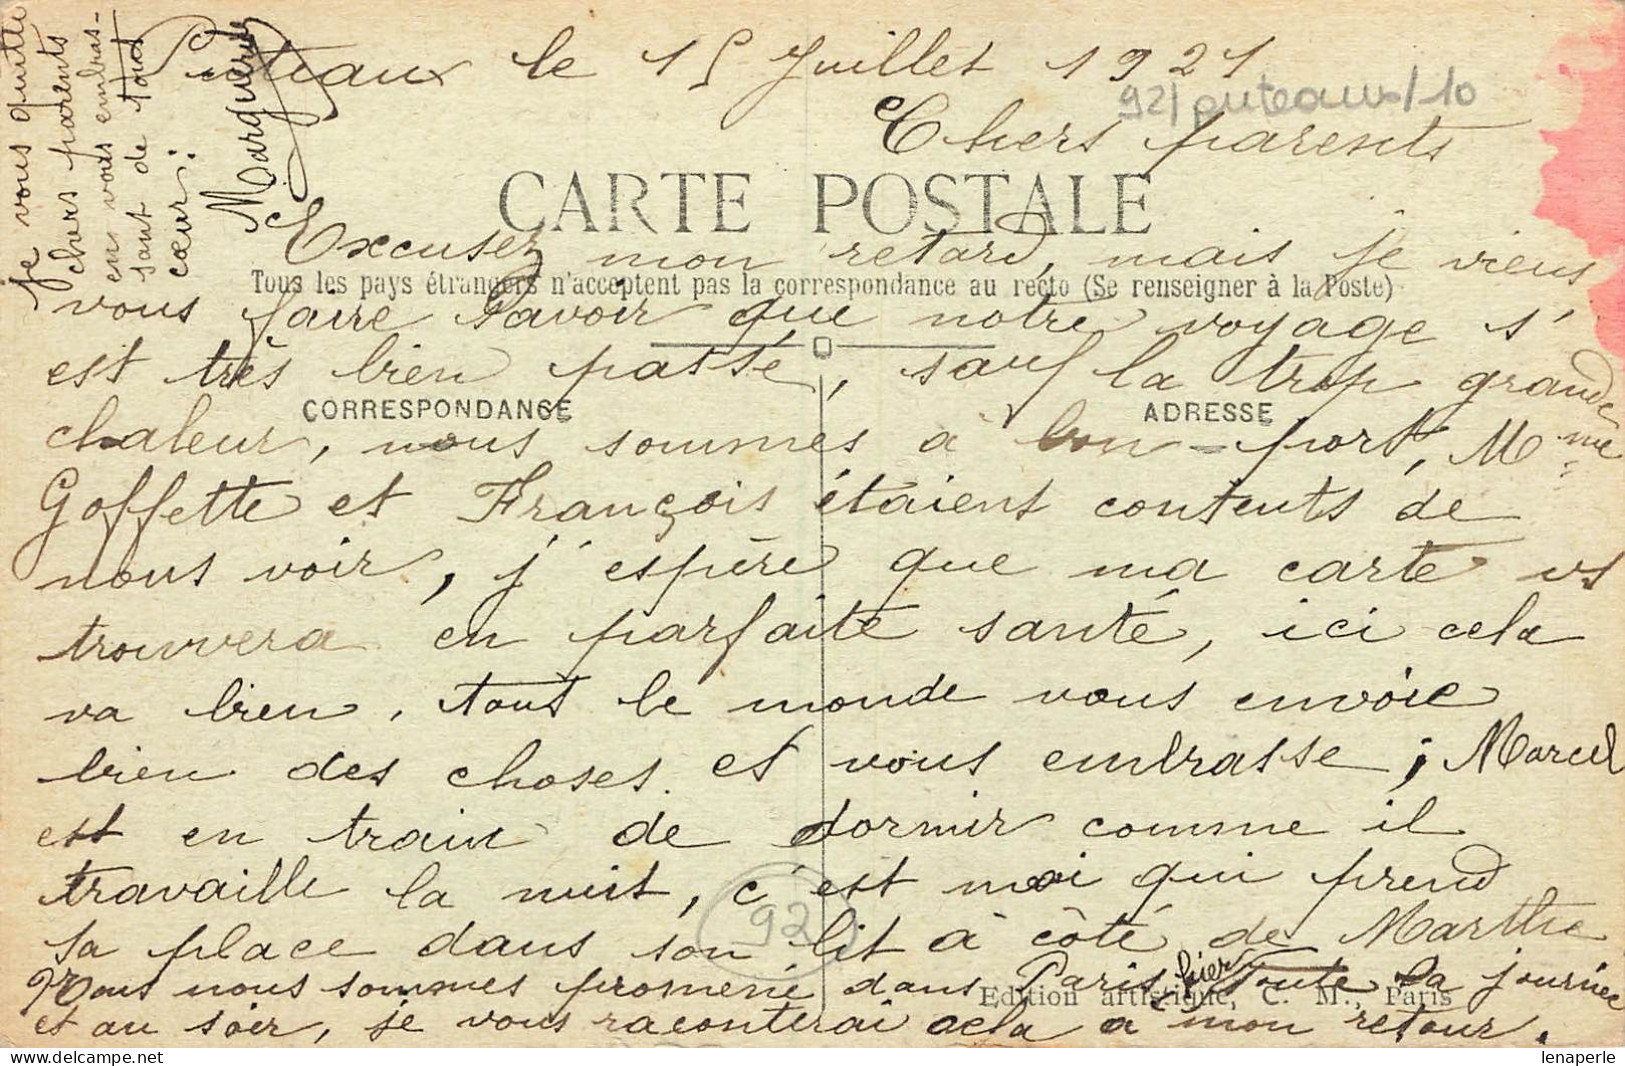 Puteaux le 15 Juillet 1921
92/puteaux/10
Chers parents
CARTE POSTALE
Excusez mon retard, mais je viens
Tous les pays étrangers n'acceptent pas la correspondance au recto (Se renseigner à la Poste)
vous faire savoir que notre voyage s'
est très bien passé, sauf la trop grande
CORRESPONDANCE
ADRESSE
chaleur, nous sommes à bon-port, Mme
Goffette et François étaient contents de
nous voir, j'espère que ma carte vs
trouvera en parfaite santé, ici cela
va bien, tout le monde vous envoie
bien des choses et vous embrasse; Marcel
est en train de dormir comme il
travaille la nuit, c'est moi qui prend
92
sa place dans son lit à côté de Marthe
Nous nous sommes promené dans Paris hier Toute la journée
Edition artistique, C. M., Paris
et au soir, je vous raconterai cela a mon retour.
je vous quitte
chers parents
en vous embras-
sant de tout
cœur:
Marguerite
lenaperle